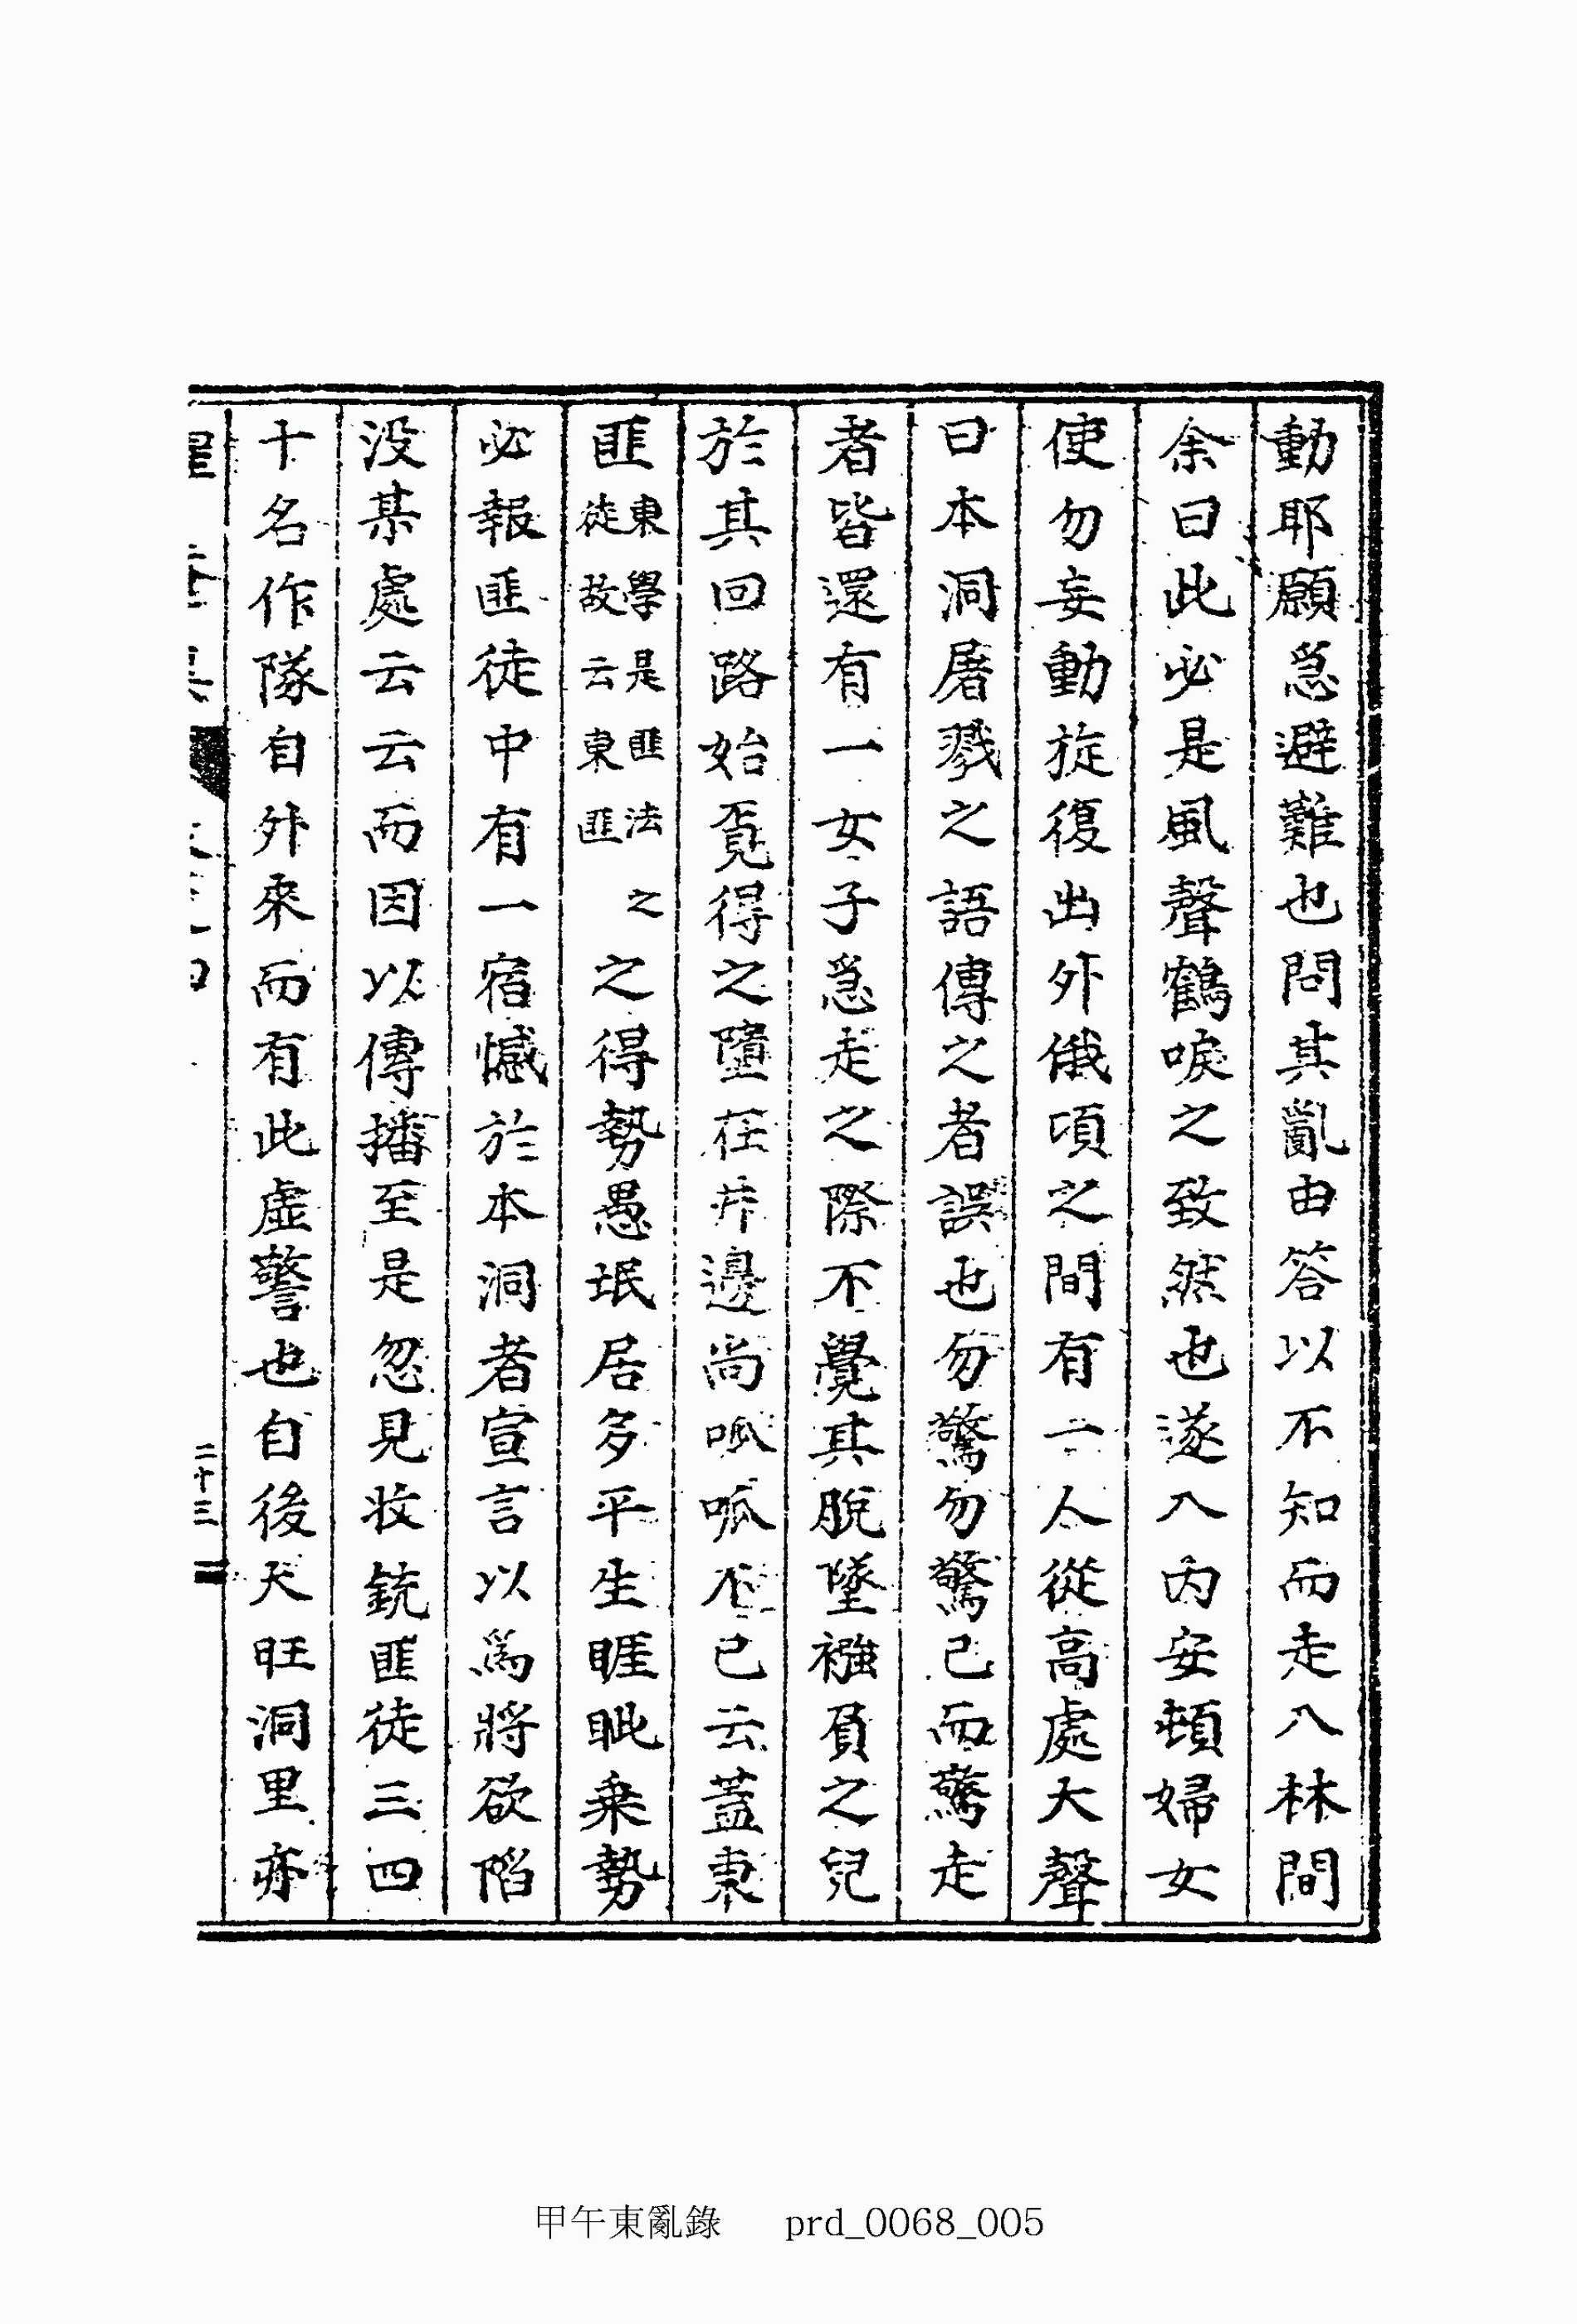 動耶願急避難也問其亂由答以不知而走入林間
余曰此必是風聲鶴唳之致然也遂入內安頓婦女
使勿妄動旋復出外俄頃之間有一人從高處大聲
曰本洞屠戮之語傳之者誤也勿驚勿驚已而驚走
者皆還有一女子急走之際不覺其脫墜襁負之兒
於其回路始覓得之墮在井邊尚呱呱不已云蓋東
匪東學是匪法之徒故云東匪之得勢愚氓居多平生睚眦乘勢
必報匪徒中有一宿憾於本洞者宣言以爲將欲陷
没某處云云而因以傳播至是忽見妆銃匪徒三四
十名作隊自外來而有此虛警也自後天旺洞里亦
二十三
甲午東亂錄 prd_0068_005